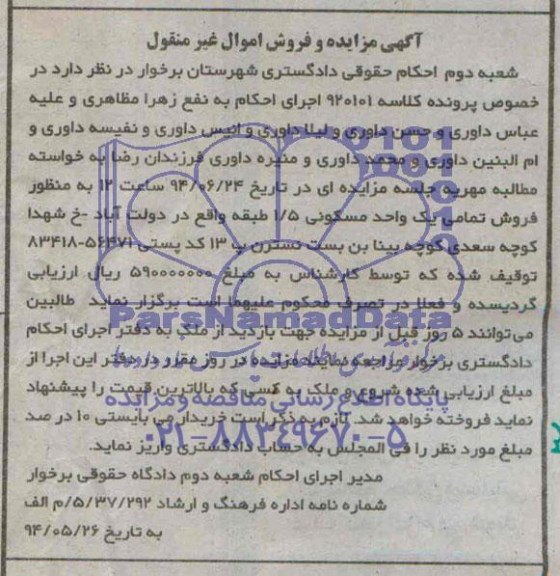 آگهی مزایده و فروش اموال غیر منقول
شعبه دوم احکام حقوقی دادگستری شهرستان برخوار در نظر دارد در
خصوص پرونده کلاسه ۹۲۰۱۰۱ اجرای احکام به نفع زهرا مظاهری و علیه
عباس داوری و حسن داوری و لیلا داوری و انیس داوری و نفیسه داوری و
ام البنین داوری و محمد داوری و منیره داوری فرزندان رضا به خواسته
مطالبه مهریه جلسه مزایده ای در تاریخ ۹۴/۰۶/۲۴ ساعت ۱۲ به منظور
فروش تمامی یک واحد مسکونی ۱/۵ طبقه واقع در دولت آباد -خ شهدا
کوچه سعدی کوچه بینا بن بست نسترن پ ۱۳ کد پستی ۵۶۴۷۱-۸۳۴۱۸
توقیف شده که توسط کارشناس به مبلغ ۵۹۰۰۰۰۰۰۰ ریال ارزیابی
گردیسده و فعلا در تصرف محکوم علیهما است برگزار نماید طالبین
می‌توانند ۵ روز قبل از مزایده جهت بازدید از ملک به دفتر اجرای احکام
دادگستری برخوار مراجعه نمایند مزایده در روز مقرر در دفتر این اجرا از
مبلغ ارزیابی شده شروع و ملک به کسی که بالاترین قیمت را پیشنهاد
نماید فروخته خواهد شد. لازم به ذکر است خریدار می بایستی ۱۰ در صد
مبلغ مورد نظر را فی المجلس به حساب دادگستری واریز نماید.
مدیر اجرای احکام شعبه دوم دادگاه حقوقی برخوار
شماره نامه اداره فرهنگ و ارشاد ۵/۳۷/۲۹۲/م الف
به تاریخ ۹۴/۰۵/۲۶
ParsNamadData
پایگاه اطلاع رسانی مناقصه و مزایده
۰۲۱-۸۸۳۴۹۶۷۰-۵